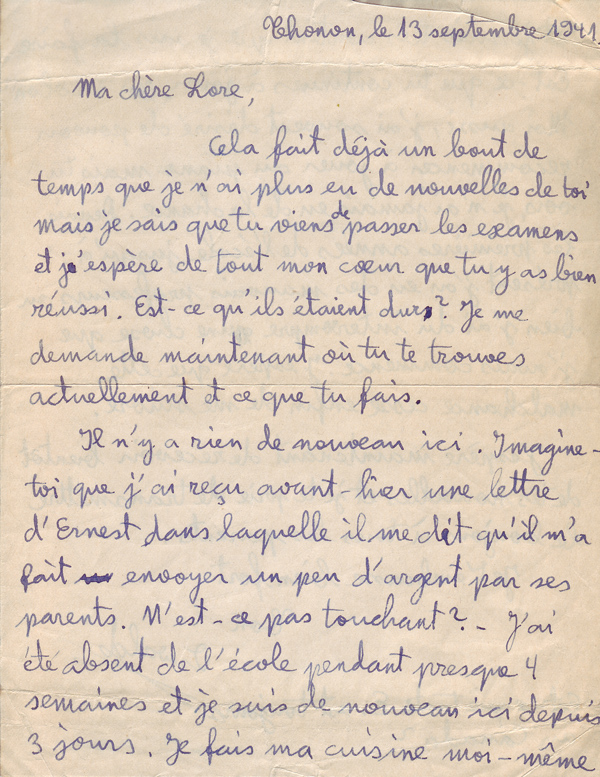 Thonon, le 13 septembre 1941.
Ma chère Lore,
Cela fait déjà un bout de
temps que je n'ai plus eu de nouvelles de toi
mais je sais que tu viens de passer les examens
et j'espère de tout mon cœur que tu y as bien
réussi. Est-ce qu'ils étaient durs? Je me
demande maintenant où tu te trouves
actuellement et ce que tu fais.
Il n'y a rien de nouveau ici. Imagine-
toi que j'ai reçu avant-hier une lettre
d'Ernest dans laquelle il me dit qu'il m'a
fait envoyer un peu d'argent par ses
parents. N'est-ce pas touchant? - J'ai
été absent de l'école pendant presque 4
semaines et je suis de nouveau ici depuis
3 jours. Je fais ma cuisine moi-même